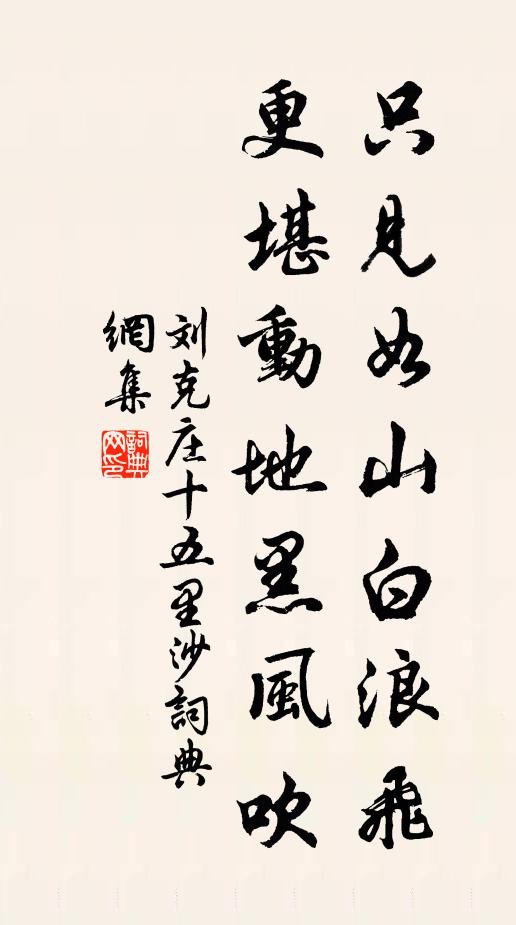 只見如山白浪飛
更堪動地黑風吹
刘克庄十五里沙詞典
網集
詞典網印